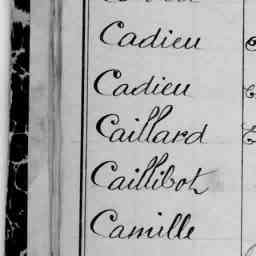 Cadieu
Cadieu
Caillard
Caillibot
Camille